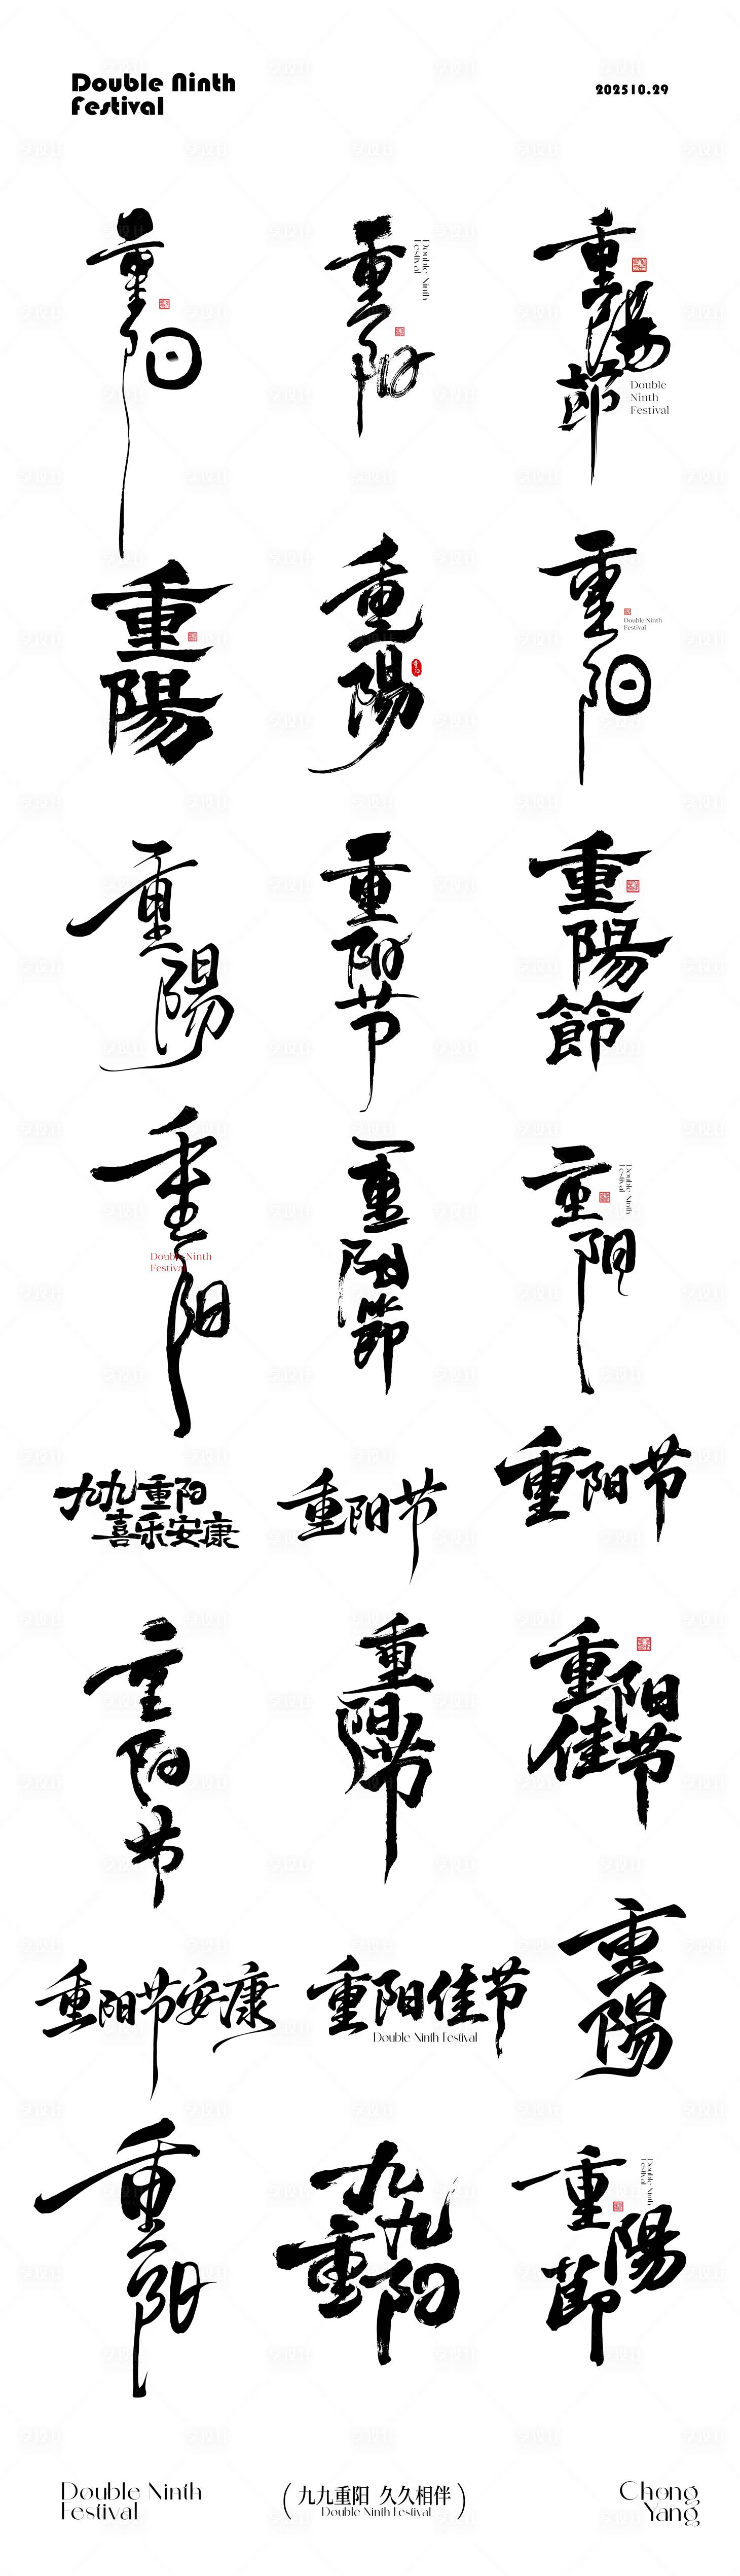 Double Ninth
Festival
202510.29
重阳
重阳
Double Ninth
Festival
重陽節
Double
Ninth
Festival
重陽
重陽
重阳
Double Ninth
Festival
重陽
重阳节
重陽節
重阳
Double Ninth
Festival
重阳節
重阳
Double Ninth
Festival
九九重阳
喜乐安康
重阳节
重阳节
重阳节
重阳节
重阳
佳节
重阳节安康
重阳佳节
Double Ninth Festival
重陽
重阳
九九
重阳
重陽節
Double Ninth
Festival
Double Ninth
Festival
（九九重阳 久久相伴）
Double Ninth Festival
Chong
Yang